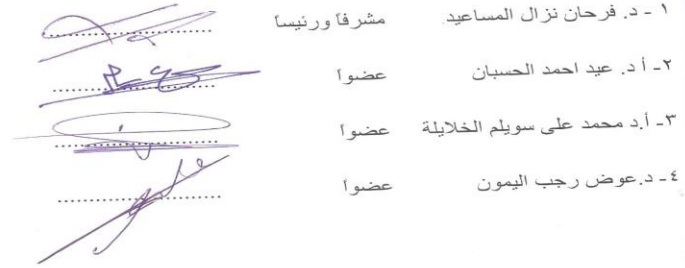 ١ - د. فرحان نزال المساعيد مشرفاً ورئيساً ....................
٢- أ د. عيد احمد الحسبان عضواً ....................
٣- أ.د محمد على سويلم الخلايلة عضواً ....................
٤ - د.عوض رجب اليمون عضواً ....................